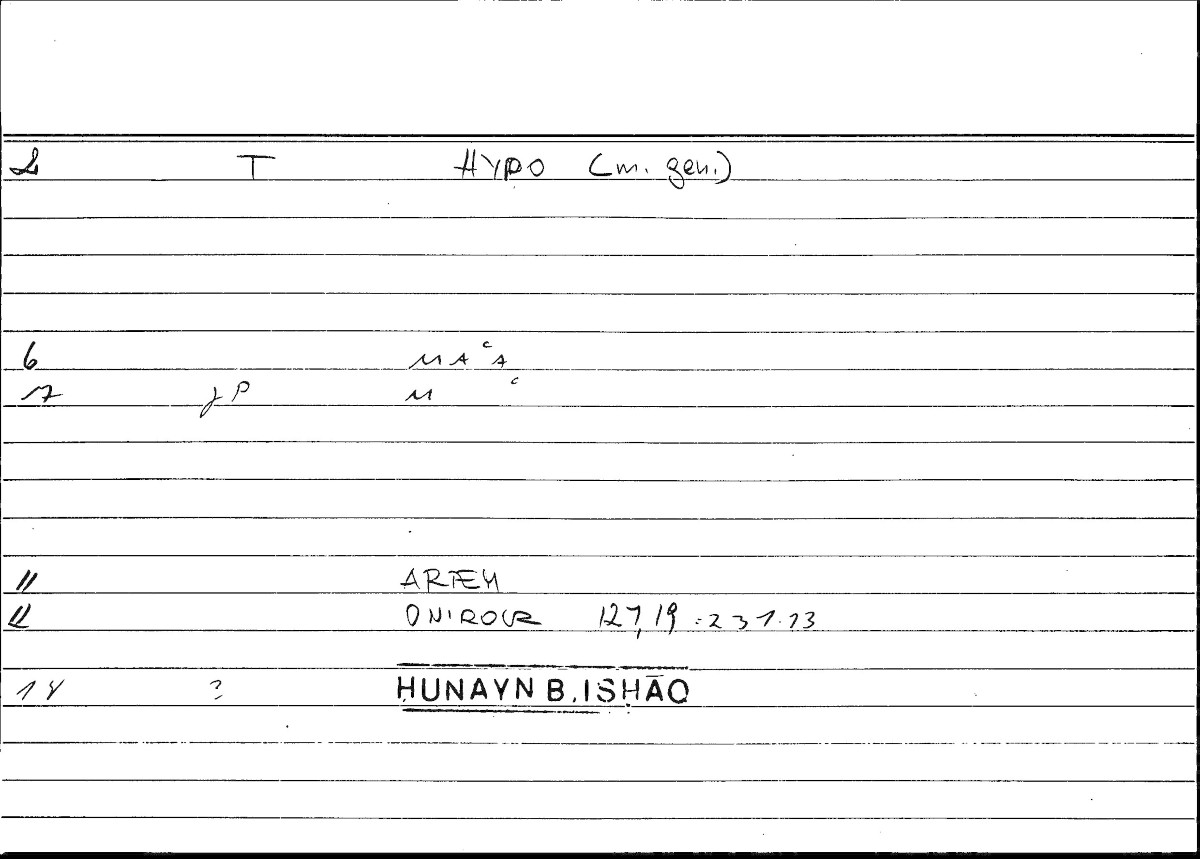 2 T HYPO (m. gen.)
6 MAᶜA
7 γP Mᶜ
11 ARTEM
12 ONIROCR 127,19 - 231.13
14 ? ḤUNAYN B. ISḤĀQ